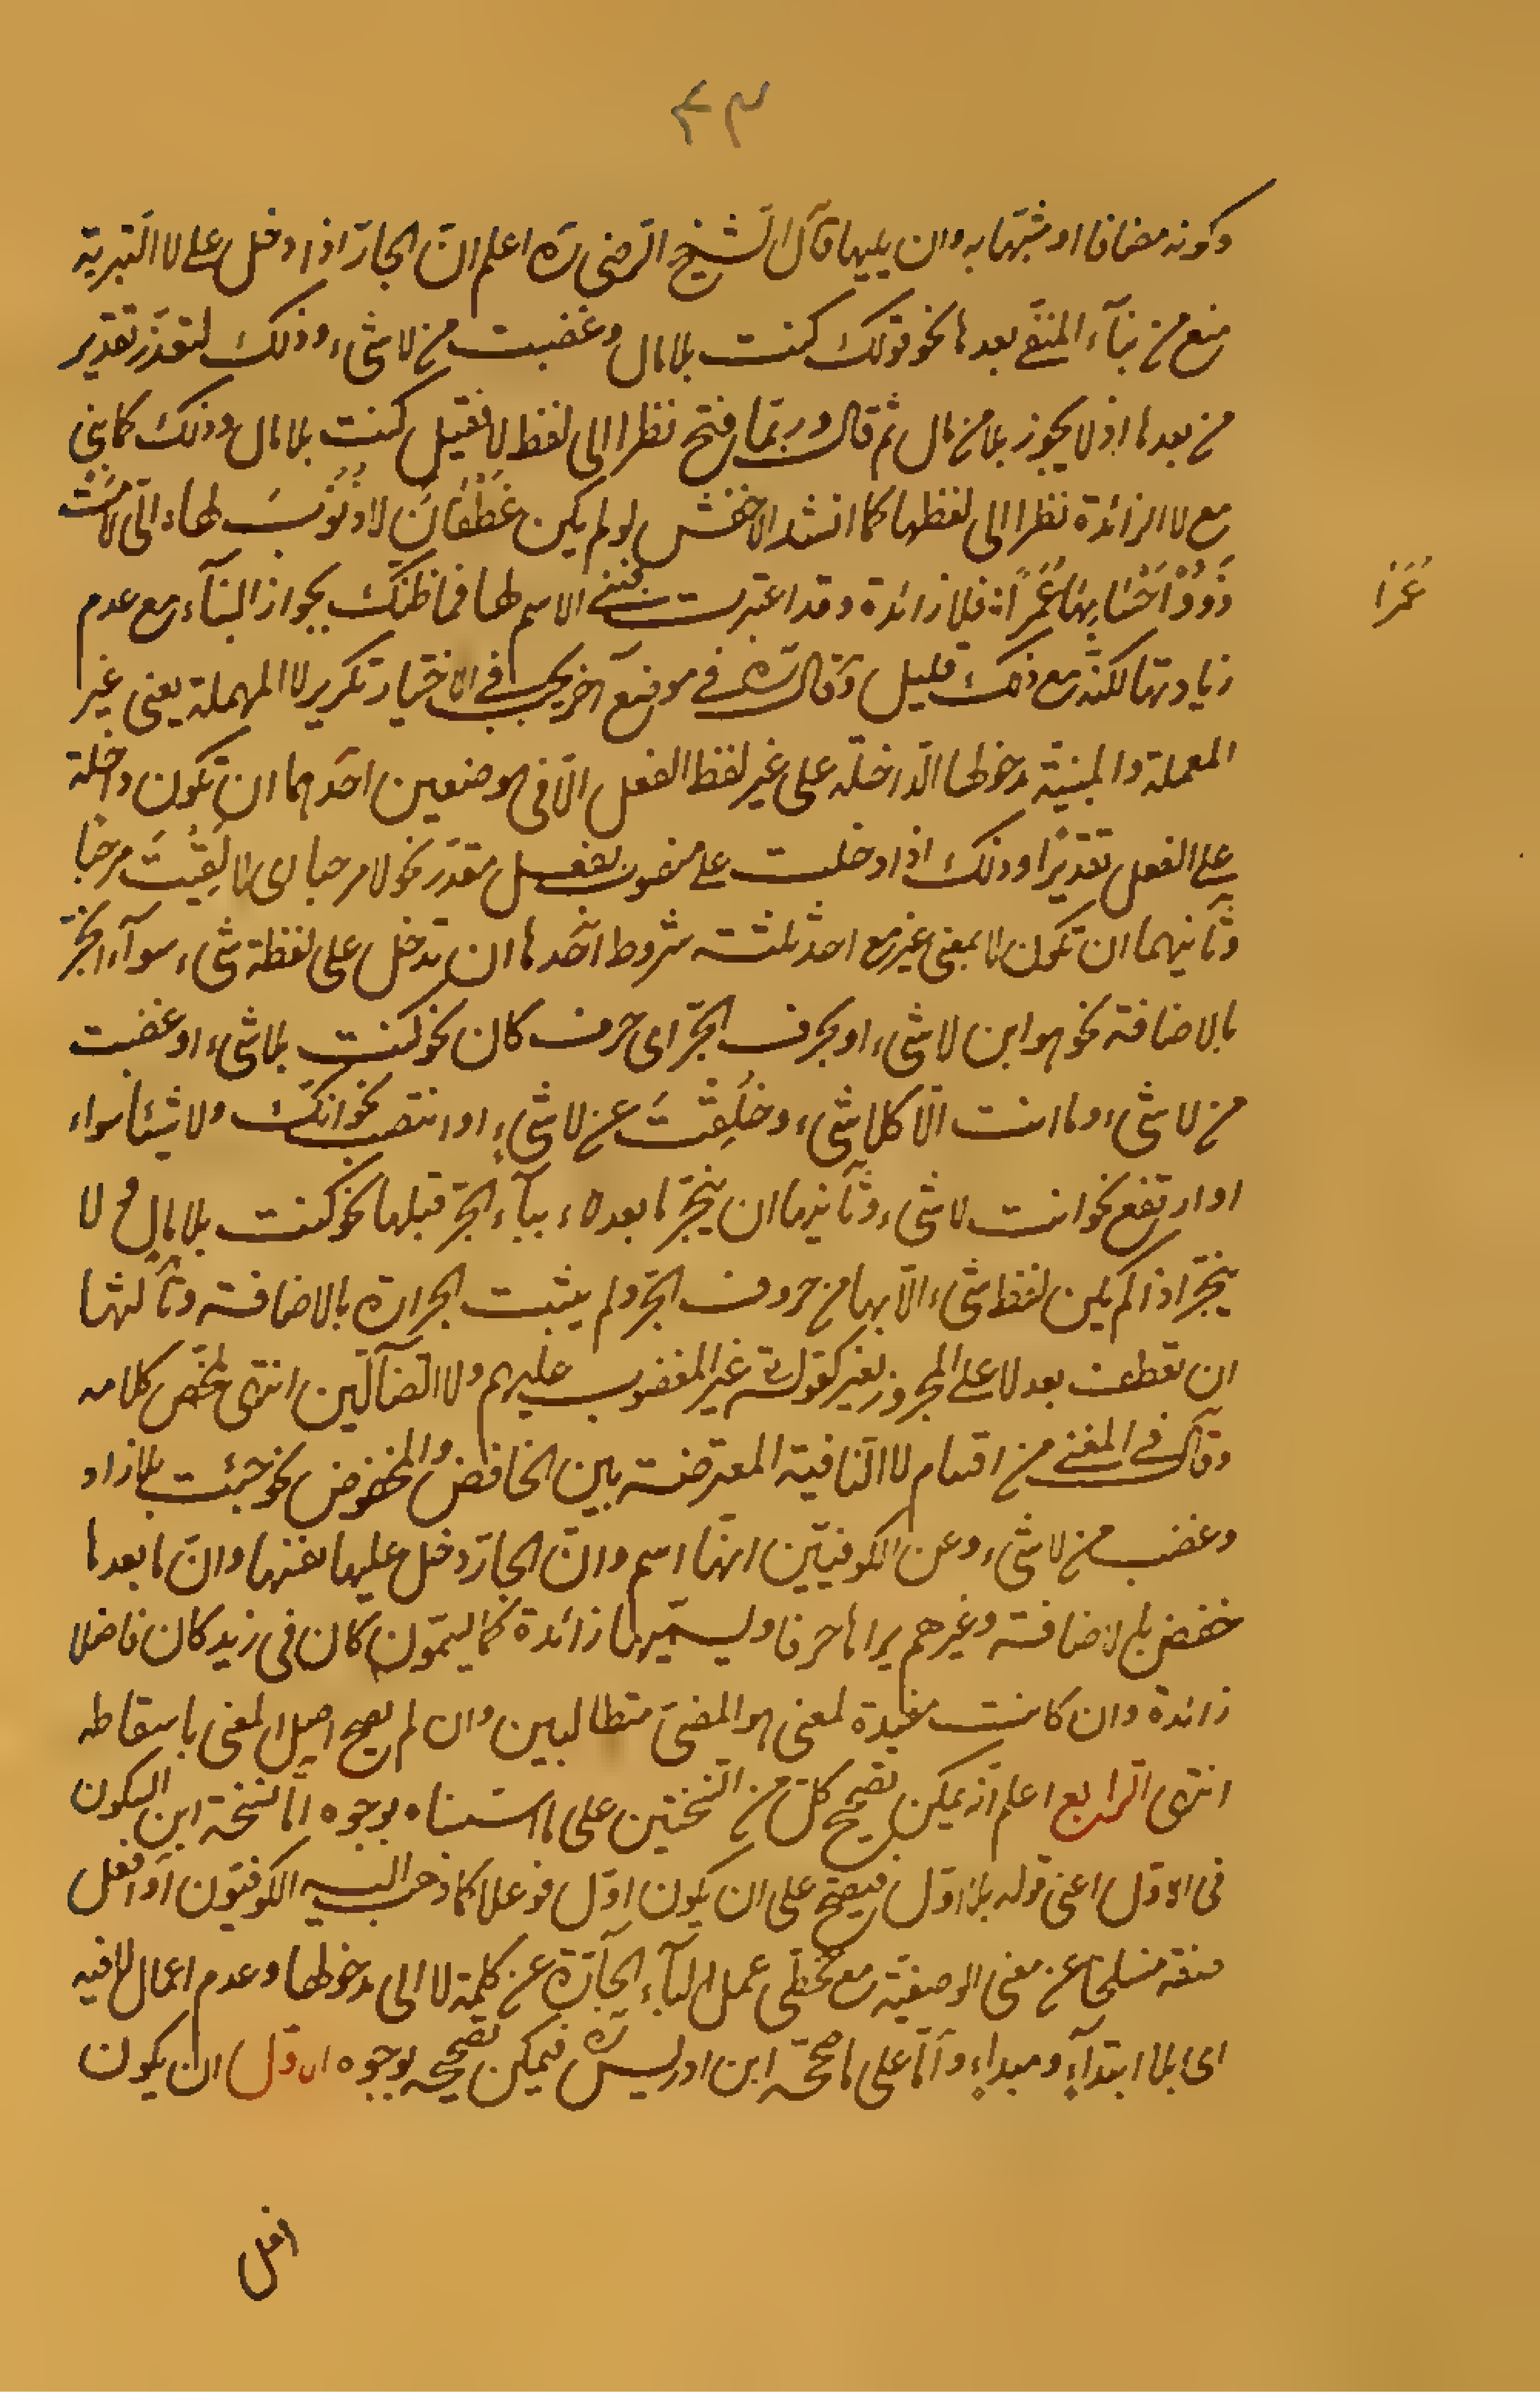 ٤٣
وكونه مضافا او شبهها به وان يليها قال الشيخ الرضى ره اعلم انّ الجارّ اذا دخل على لا التبرية
منع من بنآء المنفى بعدها نحو قولك كنت بلا مال وغضبت من لا شىء وذلك لتعذّر تقدير
من بعدها اذ لا يجوز بلا من مال ثم قال وربّما فتح نظرا الى لفظ لا فقيل كنت بلا مال وذلك كما بنى
مع لا الزائدة نظرا الى لفظها كما انشد الاخفش لو لم يكن غَطَفَانُ لا ذُنُوبَ لها الىّ لامَتْ
ذَوُوْ اَحْسَابِهَا عُمَرًا فلا زائدة وقد اعتبرت فبنى الاسم لها فما ظنّك بجواز البنآء مع عدم
عُمَرَا
زيادتها لكنّه مع ذلك قليل وقال ره فى موضع آخر يجب فى الاختيار تكرير لا المهملة يعنى غير
المعملة والمبنيّة مدخولها الدّاخلة على غير لفظ الفعل الّا فى موضعين احدهما ان تكون داخلة
على الفعل تقديرًا وذلك اذا دخلت على منصوب بفعل مقدّر نحو لا مرحبا اى لا لَقِيْتَ مرحبًا
وثانيهما ان تكون لا بمعنى غير مع احد ثلثة شروط احّدها ان تدخل على لفظة شىء سوآء انجرّ
بالاضافة نحو هو ابن لا شىء او بحرف الجرّ اى حرف كان نحو كنت بلا شىء او غضبت
من لا شىء وما انت الّا كلا شىء وخُلِقْتَ عن لا شىءٍ او انتصب نحو انّك ولا شيئا سواء
او ارتفع نحو انت لا شىء وثانيها ان ينجرّ ما بعد لا ببآء الجرّ قبلها نحو كنت بلا مال ولا
ينجرّ اذا لم يكن لفظ شىء الّا بها من حروف الجرّ ولم يثبت انجراره بالاضافة وثالثها
ان تعطف بعد لا على المجرور بغير كقوله تع غير المغضوب عليهم ولا الضآلّين انتهى ملخّص كلامه
وقال فى المغنى من اقسام لا النّافية المعترضة بين الخافض والمخفوض نحو جئت بلا زاد
وغضب من لا شىء وعن الكوفيّين انّها اسم وانّ الجارّ دخل عليها نفسها وانّ ما بعدها
خفض بالاضافة وغيرهم يراها حرفا ويسمّيها زائدة كما يسمّون كان فى زيد كان فاضلا
زائدة وان كانت مفيدة لمعنى هو المضىّ متطالبين وان لم يصح اصل المعنى باسقاطه
انتهى الرّابع اعلم انّه يمكن تصحيح كلّ من النّسختين على ما استبناه بوجوه امّا نسخة ابن السكون
فى الاوّل اعنى قوله بلا اوّل فيصحّ على ان يكون اوّل فوعلا كما ذهب اليه الكوفيّون او افعل
صفة منسلخا عن معنى الوصفيّة مع تخطّى عمل البآء الجآرّة عن كلمة لا الى مدخولها وعدم اعمال لا فيه
اى بلا ابتدآءٍ ومبداءٍ وامّا على ما صحّحه ابن ادريس ره فيمكن تصحيحه بوجوه الاوّل ان يكون
افعل